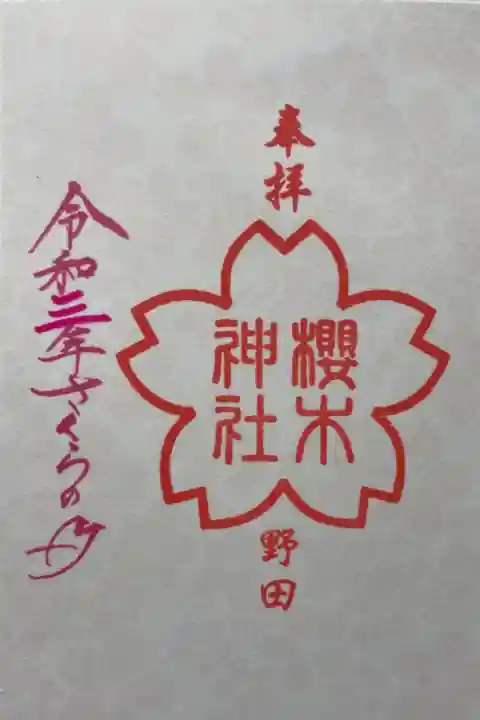 奉拝
櫻木
神社
野田
令和三年さくらの日